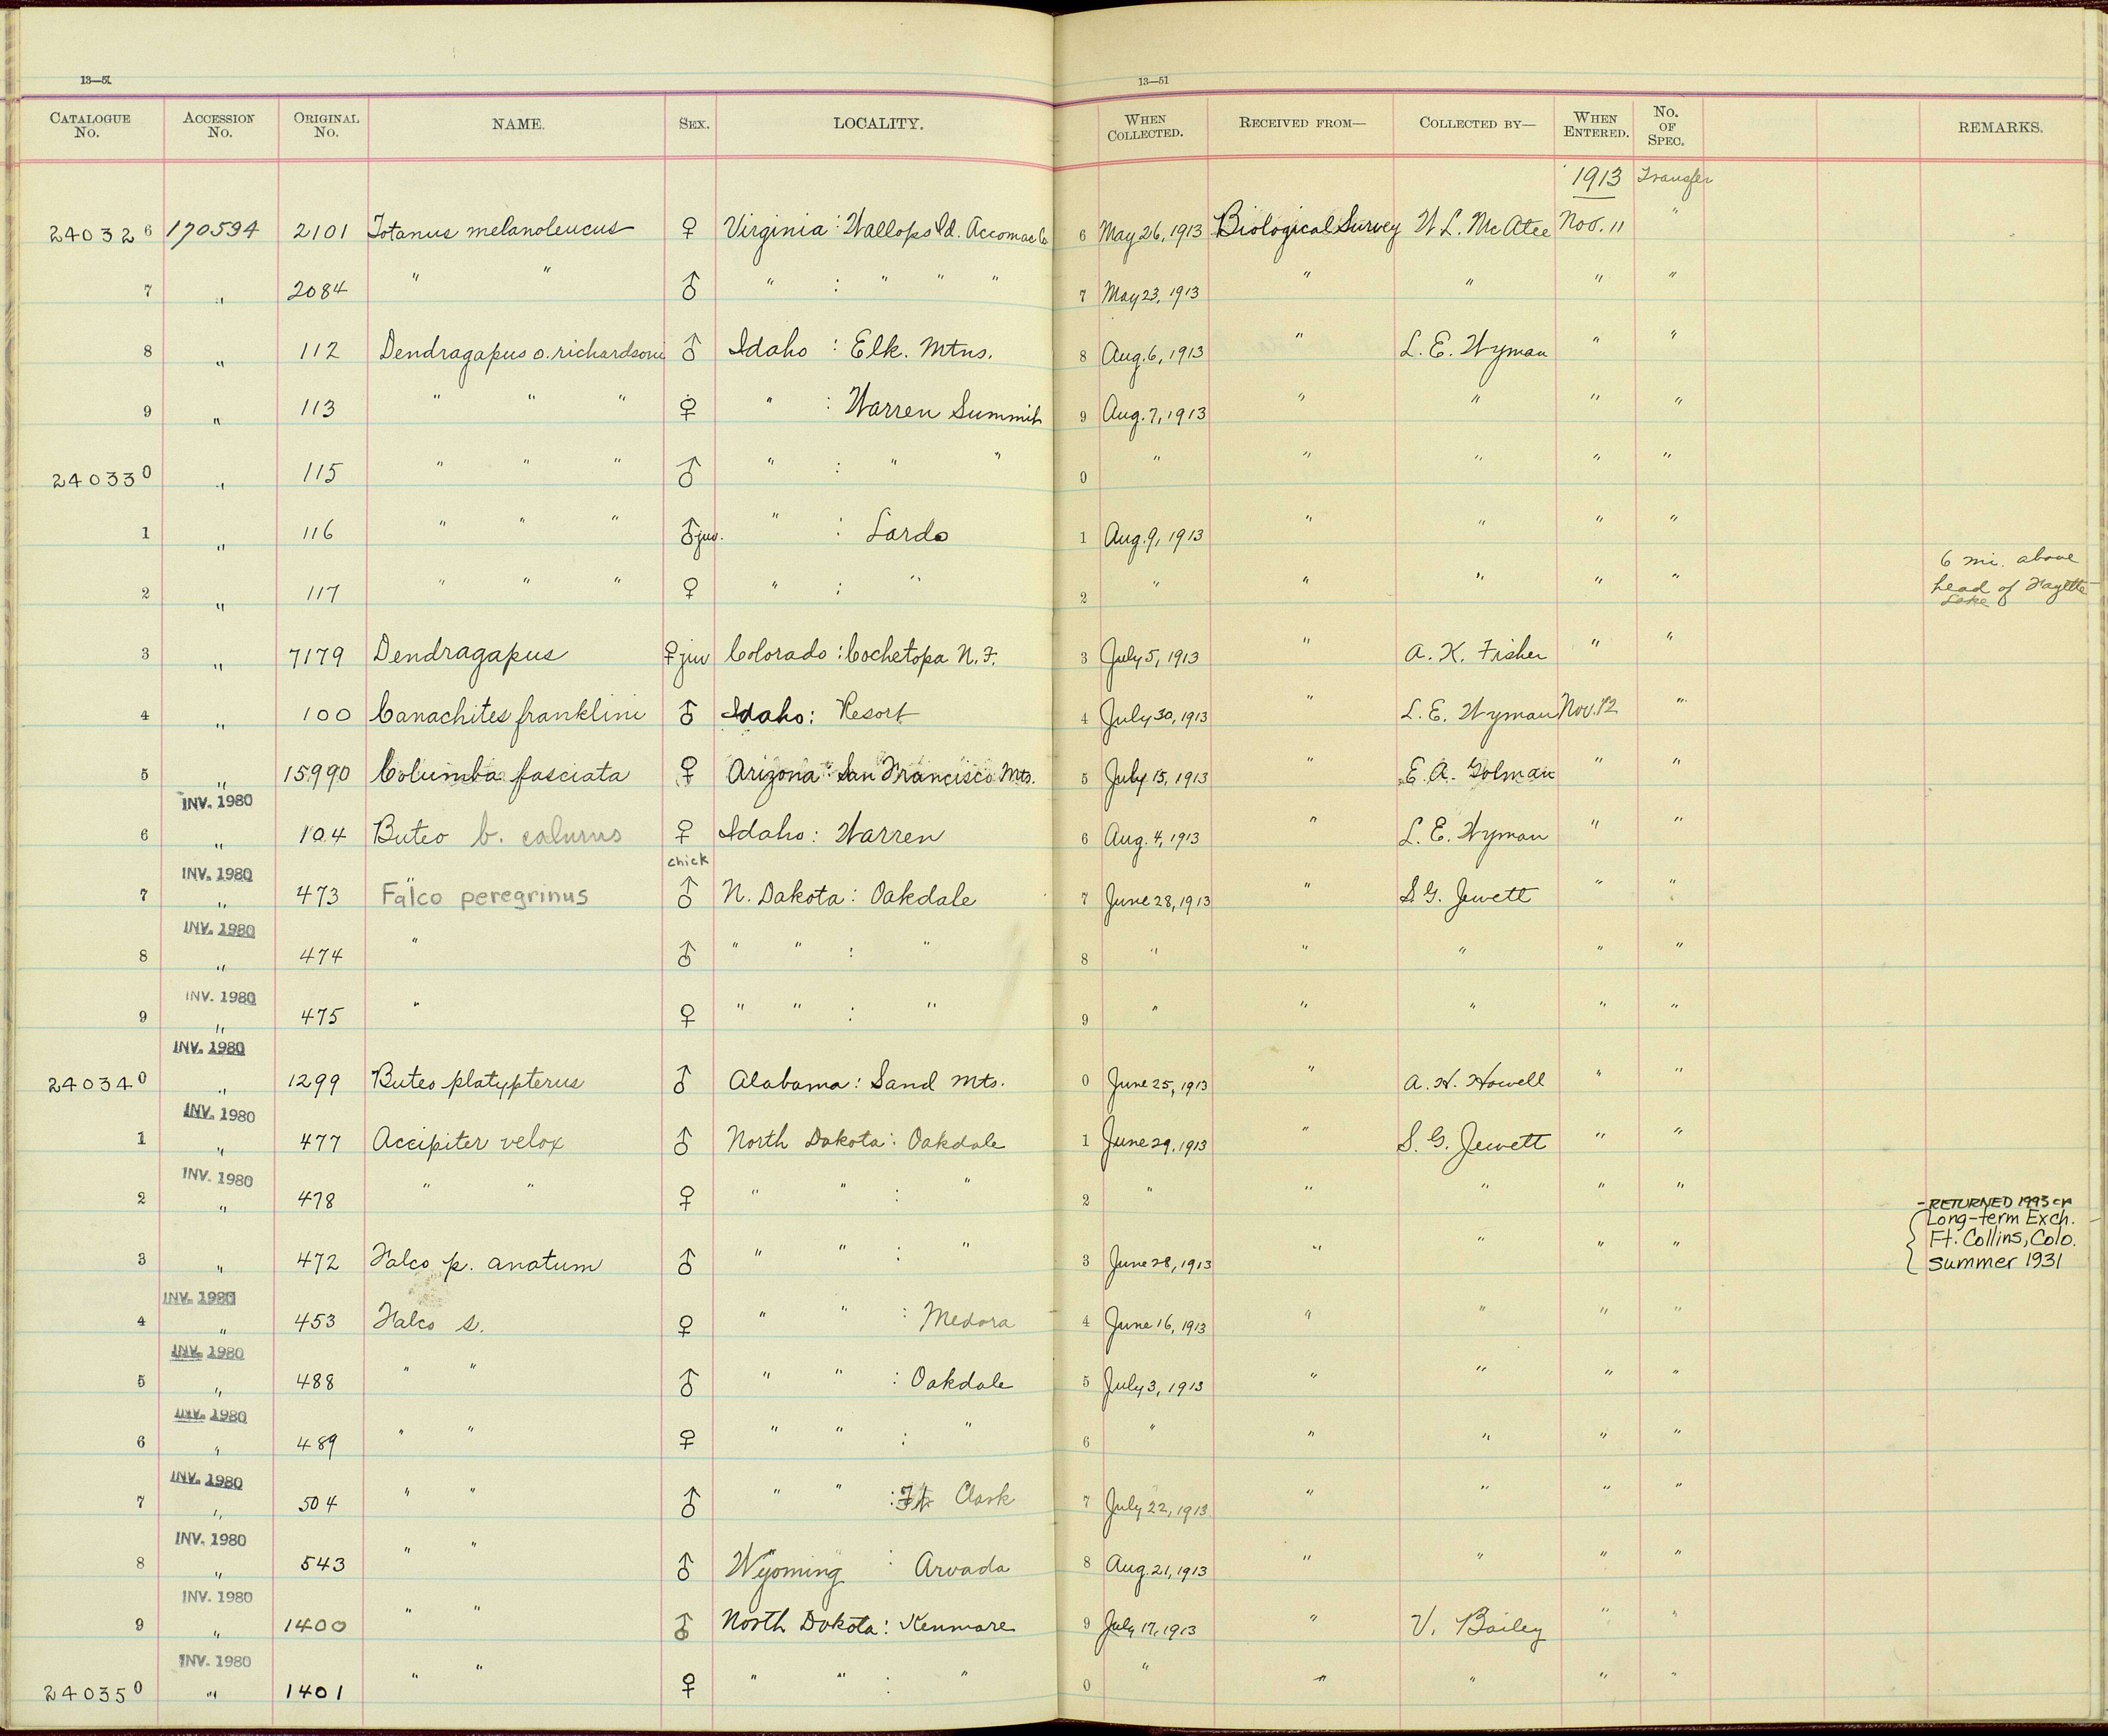 13—51
13—51
CATALOGUE No. ACCESSION No. ORIGINAL No. NAME. SEX. LOCALITY. WHEN COLLECTED. RECEIVED FROM— COLLECTED BY— WHEN ENTERED. No. OF SPEC. REMARKS.
1913 Transfer
240326 170594 2101 Totanus melanoleucus ♀ Virginia : Wallops Id. Accomac Co 6 May 26, 1913 Biological Survey W L. McAtee Nov. 11 "
7 " 2084 " " ♂ " : " " " 7 May 23, 1913 " " " "
8 " 112 Dendragapus o. richardsoni ♂ Idaho : Elk. Mtns. 8 Aug. 6, 1913 " L. E. Wyman " "
9 " 113 " " " ♀ " : Warren Summit 9 Aug. 7, 1913 " " " "
240330 " 115 " " " ♂ " : " " 0 " " " " "
1 " 116 " " " ♂ juv. " : Lardo 1 Aug. 9, 1913 " " " "
2 " 117 " " " ♀ " : " 2 " " " " " 6 mi. above
head of Payette
Lake
3 " 7179 Dendragapus ♀ juv Colorado : Cochetopa N. F. 3 July 5, 1913 " A. K. Fisher " "
4 " 100 Canachites franklini ♂ Idaho : Resort 4 July 30, 1913 " L. E. Wyman Nov. 12 "
5 " 15990 Columba fasciata ♀ Arizona : San Francisco Mts. 5 July 15, 1913 " E. A. Golman " "
INV. 1980
6 " 104 Buteo b. calurus ♀ Idaho : Warren 6 Aug. 4, 1913 " L. E. Wyman " "
chick
INV. 1980
7 " 473 Falco peregrinus ♂ N. Dakota : Oakdale 7 June 28, 1913 " S G. Jewett " "
INV. 1980
8 " 474 " ♂ " " : " 8 " " " " "
INV. 1980
9 " 475 " ♀ " " : " 9 " " " " "
INV. 1980
240340 " 1299 Buteo platypterus ♂ Alabama : Sand Mts. 0 June 25, 1913 " A. H. Howell " "
INV. 1980
1 " 477 Accipiter velox ♂ North Dakota : Oakdale 1 June 29, 1913 " S. G. Jewett " "
INV. 1980
2 " 478 " " ♀ " " : " 2 " " " " "
- RETURNED 1993 cr
Long-term Exch.
Ft. Collins, Colo.
summer 1931
3 " 472 Falco p. anatum ♂ " " : " 3 June 28, 1913 " " " "
INV. 1980
4 " 453 Falco s. ♀ " " : Medora 4 June 16, 1913 " " " "
INV. 1980
5 " 488 " " ♂ " " : Oakdale 5 July 3, 1913 " " " "
INV. 1980
6 " 489 " " ♀ " " : " 6 " " " " "
INV. 1980
7 " 504 " " ♂ " " : Ft Clark 7 July 22, 1913 " " " "
INV. 1980
8 " 543 " " ♂ Wyoming : Arvada 8 Aug. 21, 1913 " " " "
INV. 1980
9 " 1400 " " ♂ North Dakota : Kenmare 9 July 17, 1913 " V. Bailey " "
INV. 1980
240350 " 1401 " " ♀ " " : " 0 " " " " "